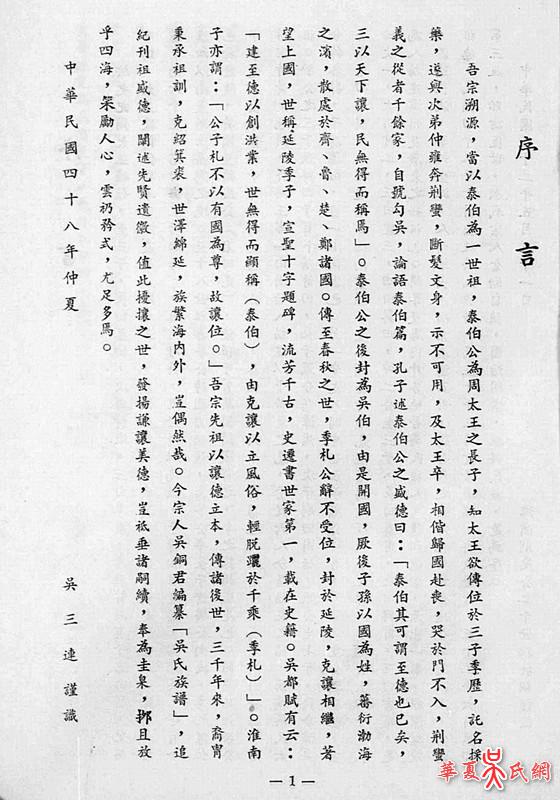 序言
吾宗溯源，當以泰伯為一世祖，泰伯公為周太王之長子，知太王欲傳位於三子季歷，託名採
藥，遂與次弟仲雍奔荆蠻，斷髮文身，示不可用，及太王卒，相偕歸國赴喪，哭於門不入，荆蠻
義之從者千餘家，自號勾吳，論語泰伯篇，孔子述泰伯公之盛德曰：「泰伯其可謂至德也已矣，
三以天下讓，民無得而稱焉」。泰伯公之後封為吳伯，由是開國，厥後子孫以國為姓，蕃衍渤海
之濱，散處於齊、魯、楚、鄭諸國。傳至春秋之世，季札公辭不受位，封於延陵，克讓相繼，著
望上國，世稱延陵季子，宣聖十字題碑，流芳千古，史遷書世家第一，載在史籍。吳都賦有云：
「建至德以創洪業，世無得而顯稱（泰伯），由克讓以立風俗，輕脫躧於千乘（季札）」。淮南
子亦謂：「公子札不以有國為尊，故讓位。」吾宗先祖以讓德立本，傳諸後世，三千年來，裔胄
秉承祖訓，克紹箕裘，世澤綿延，族繁海內外，豈偶然哉。今宗人吳銅君編纂「吳氏族譜」，追
紀刊祖盛德，闡述先賢遺徽，值此擾攘之世，發揚謙讓美德，豈祇垂諸嗣續，奉為圭臬，抑且放
乎四海，策勵人心，雲礽矜式，尤足多焉。
中華民國四十八年仲夏
吳三連謹識
—1—
華夏吳氏網